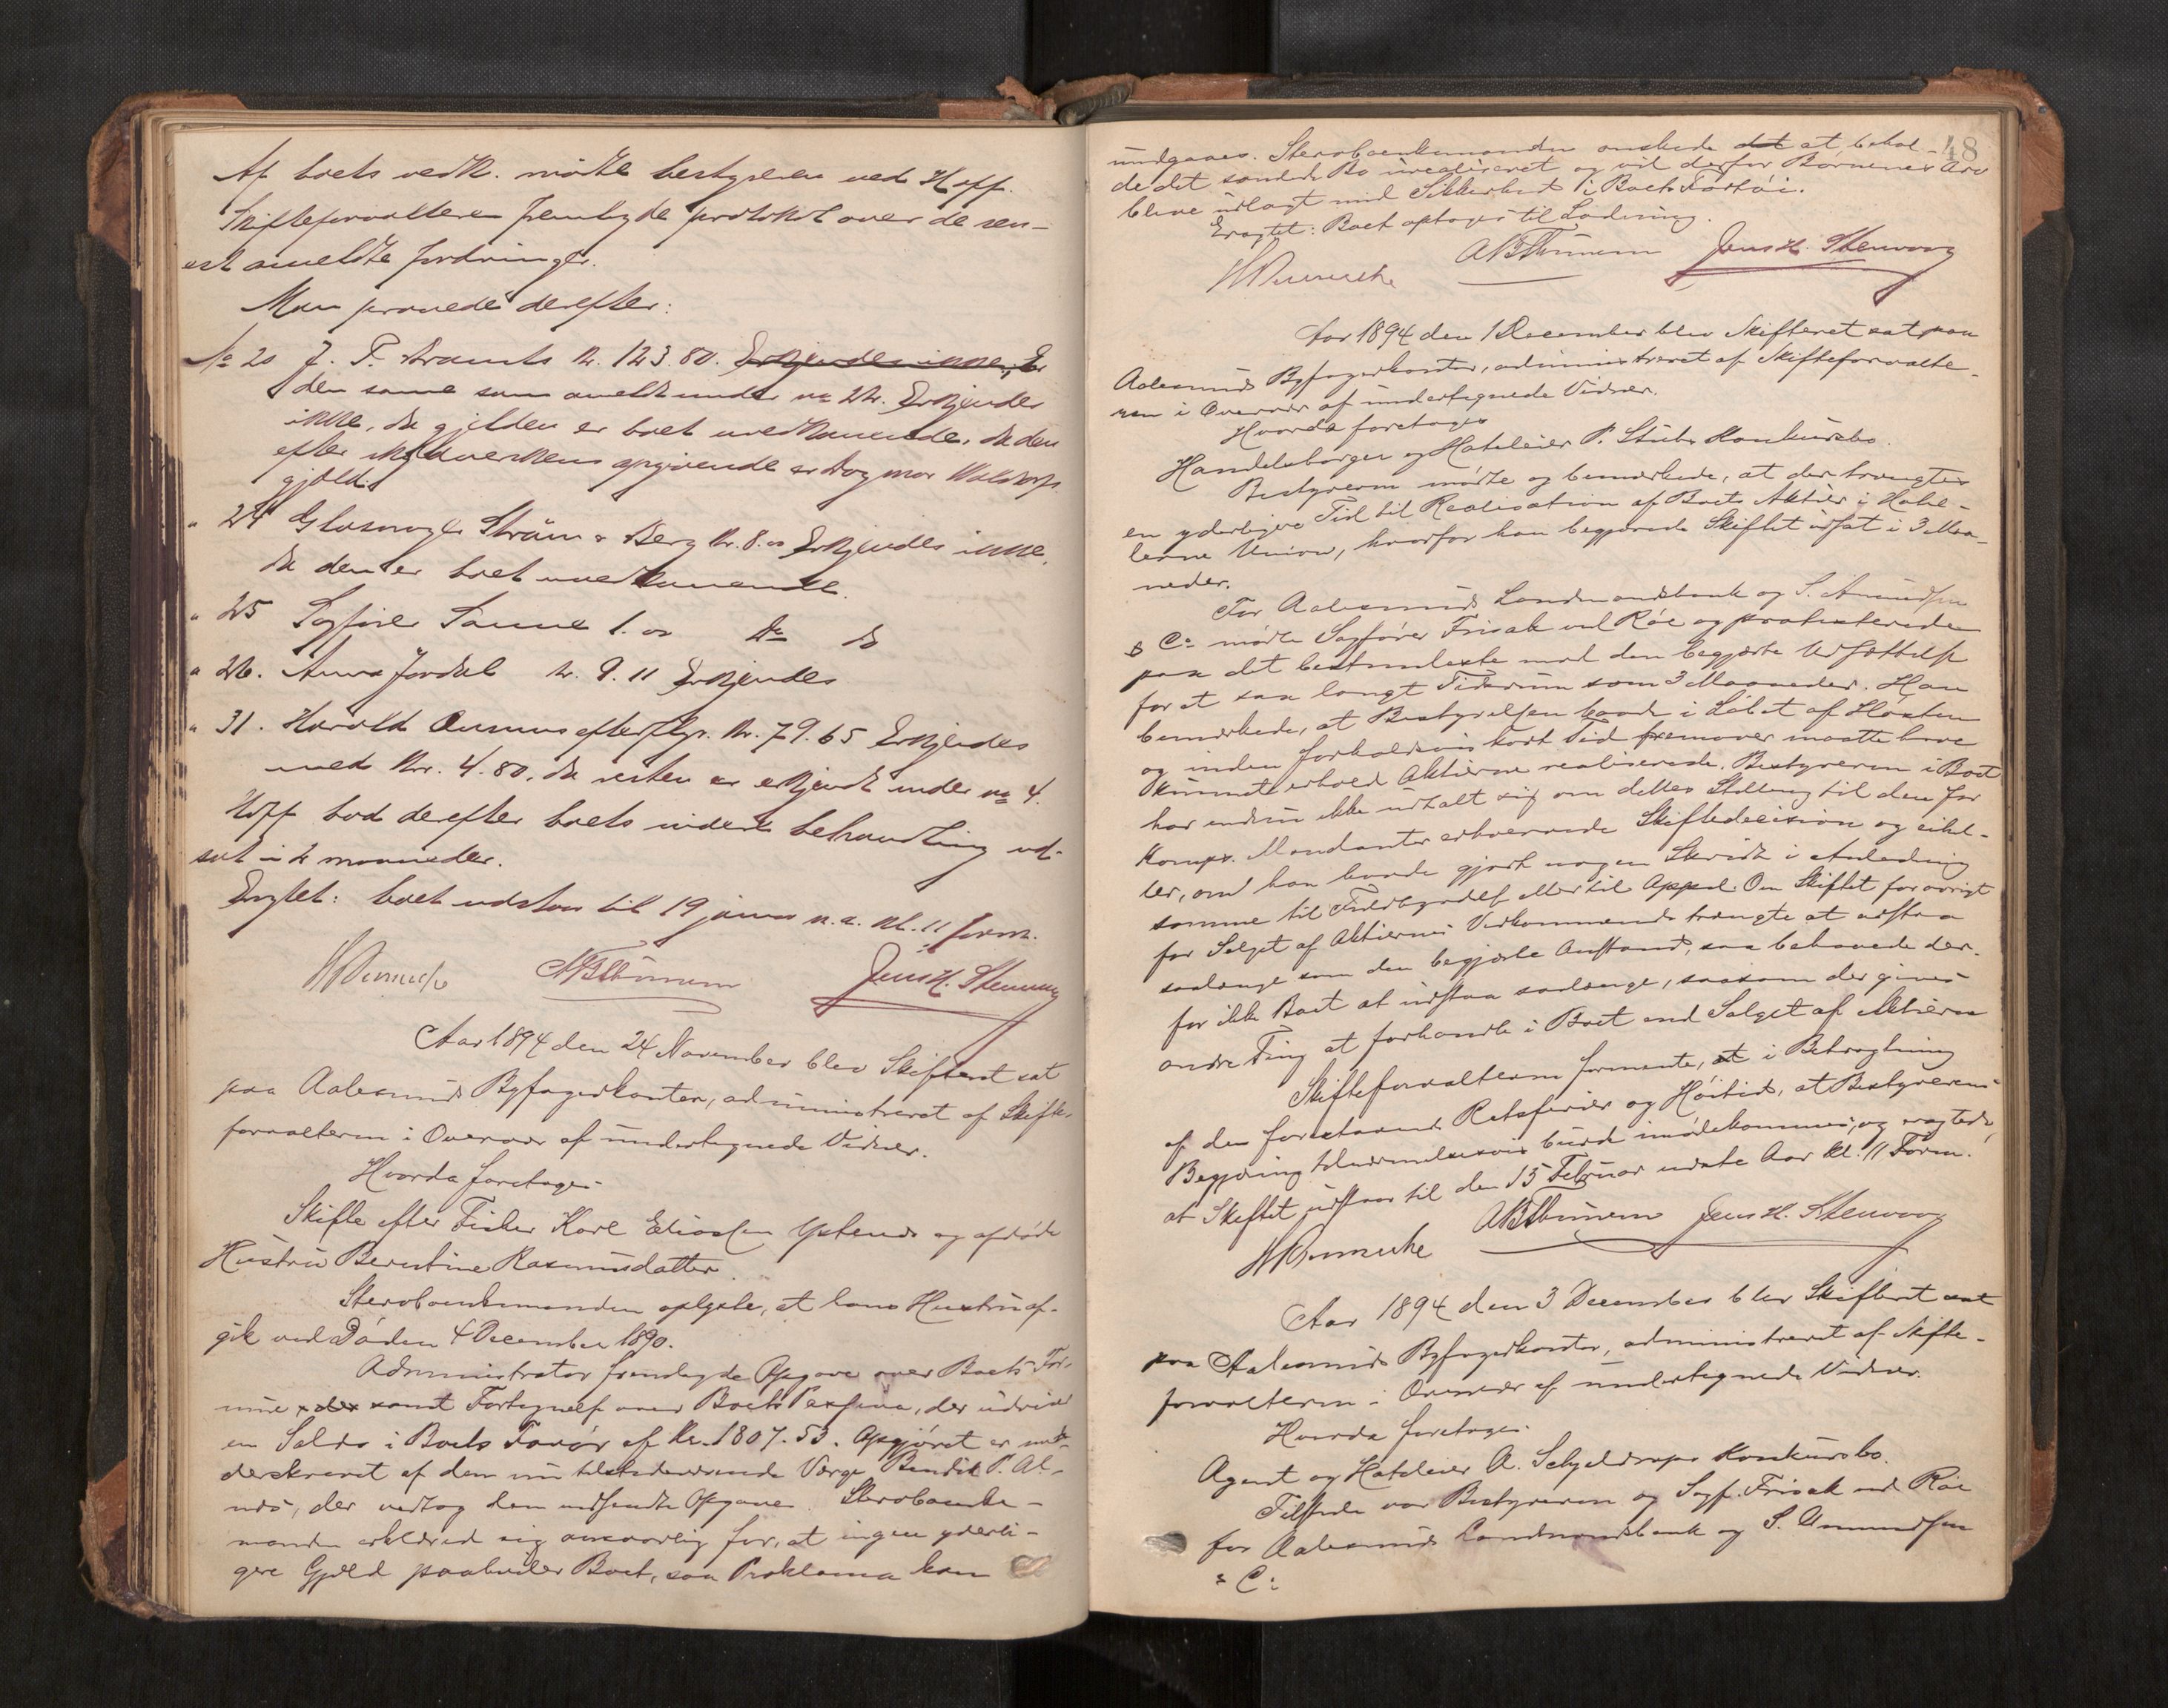 Af boets vedk. mødte bestyreren ved Hoff.
Skifteforvalteren fremlagde protokol over de sen-
est anmeldte fordringer.
Man prøvede derefter:
No 20 J. T. kr. 123.80. Erkjendes ikke, Er
den samme som anmeldt under no 22. Erkjendes
ikke, da gjelden er boet uvedkommende, da den
efter opgivende er Dagmar
gjæld.
" 24 Glasmager Strøm & Berg kr. 8.00 Erkjendes ikke,
da den er boet uvedkommende.
" 25 Sagfører Sanne 1.00 Do do
" 26. Anna Jordal kr. 9.11 Erkjendes
" 31. Harald efterflgr. kr. 79.65 Erkjendes
med kr. 4.80, da resten er erkjendt under no 4.
Hoff bad derefter boets videre behandling ud-
sat i 2 maaneder.
Eragtet: boet udstaar til 19 januar n.a. kl. 11 form.
Jens H. Stenvaag
Aar 1894 den 24 November blev Skifteret sat
paa Aalesunds Byfogedkontor, administreret af Skifte-
forvalteren i Overvær af undertegnede Vidner.
Hvorda foretoges
Skifte efter Fisker Karl Eliassen Ystenes og afdøde
Hustru Berntine Rasmusdatter.
Stervboenkemanden oplyste, at hans Hustru af-
gik ved Døden 4 December 1890.
Administrator fremlagde Opgave over Boets For-
mue samt Fortegnelse over Boets Passiva, der udviser
en Saldo i Boets Favør af Kr. 1807.53. Opgjøret er un-
derskrevet af den nu tilstedeværende Værge Bendik P. Al-
nes, der vedtog den indsendte Opgave. Stervboenke-
manden erklæred sig ansvarlig for, at ingen yderli-
gere Gjæld paahviler Boet, saa Proklama kan
48
undgaaes. Stervboenkemanden ønskede det at behol-
de det samlede Bo urealiseret og vil derfor Børnenes Arv
blive udlagt med Sikkerhed i Boets Fartøi.
Eragtet: Boet optages til Lodning.
Jens H. Stenvaag
Aar 1894 den 1 December blev Skifteret sat paa
Aalesunds Byfogedkontor, administreret af Skifteforvalte-
ren i Overvær af undertegnede Vidner.
Hvorda foretoges
Handelsborger og Hoteleier P. Stubs Konkursbo.
Bestyreren mødte og bemærkede, at der trængtes
en yderligere Tid til Realisation af Boets Aktier i Hotel-
lerne Union, hvorfor han begjærede Skiftet udsat i 3 Maa-
neder.
For Aalesunds Landmandsbank og S. Amundsen
& Co mødte Sagfører Frisak ved Røe og protesterede
paa det bestemteste mod den begjærte Udsættelse
for et saa langt Tidsrum som 3 Maaneder. Han
bemærkede, at Bestyrelsen baade i Løbet af Høsten
og inden forholdsvis kort Tid fremover maatte have
kunnet erholde Aktierne realiserede. Bestyreren i Boet
har endnu ikke udtalt sig om dettes Stilling til den for
Komps. Mandanter erhvervede Skiftedecision og eihel-
ler, om han havde gjort nogen Skridt i Anledning
samme til Fuldbyrdelse eller til Appel. Om Skiftet forøvrigt
for Salget af Aktiernes Vedkommende trængte at udstaa
saalænge som den begjærte Anstand, saa behøvede der-
for ikke Boet at udstaa saalænge, saasom der gives
andre Ting at forhandle i Boet end Salget af Aktierne
Skifteforvalteren formente, at i Betragtning
af den forestaaende Retsferier og Høitid, at Bestyrerens
Begjæring tilnærmelsesvis burde imødekommes, og eragtede,
at Skiftet udstaar til den 15 Februar næste Aar kl. 11 Form.
Jens H. Stenvaag
Aar 1894 den 3 December blev Skifteret sat
paa Aalesunds Byfogedkontor, administreret af Skifte-
forvalteren i Overvær af undertegnede Vidner.
Hvorda foretoges
Agent og Hoteleier A. Schjelderups Konkursbo.
Tilstede var Bestyreren og Sagf. Frisak ved Røe
for Aalesunds Landmandsbank og S. Amundsen
& Co